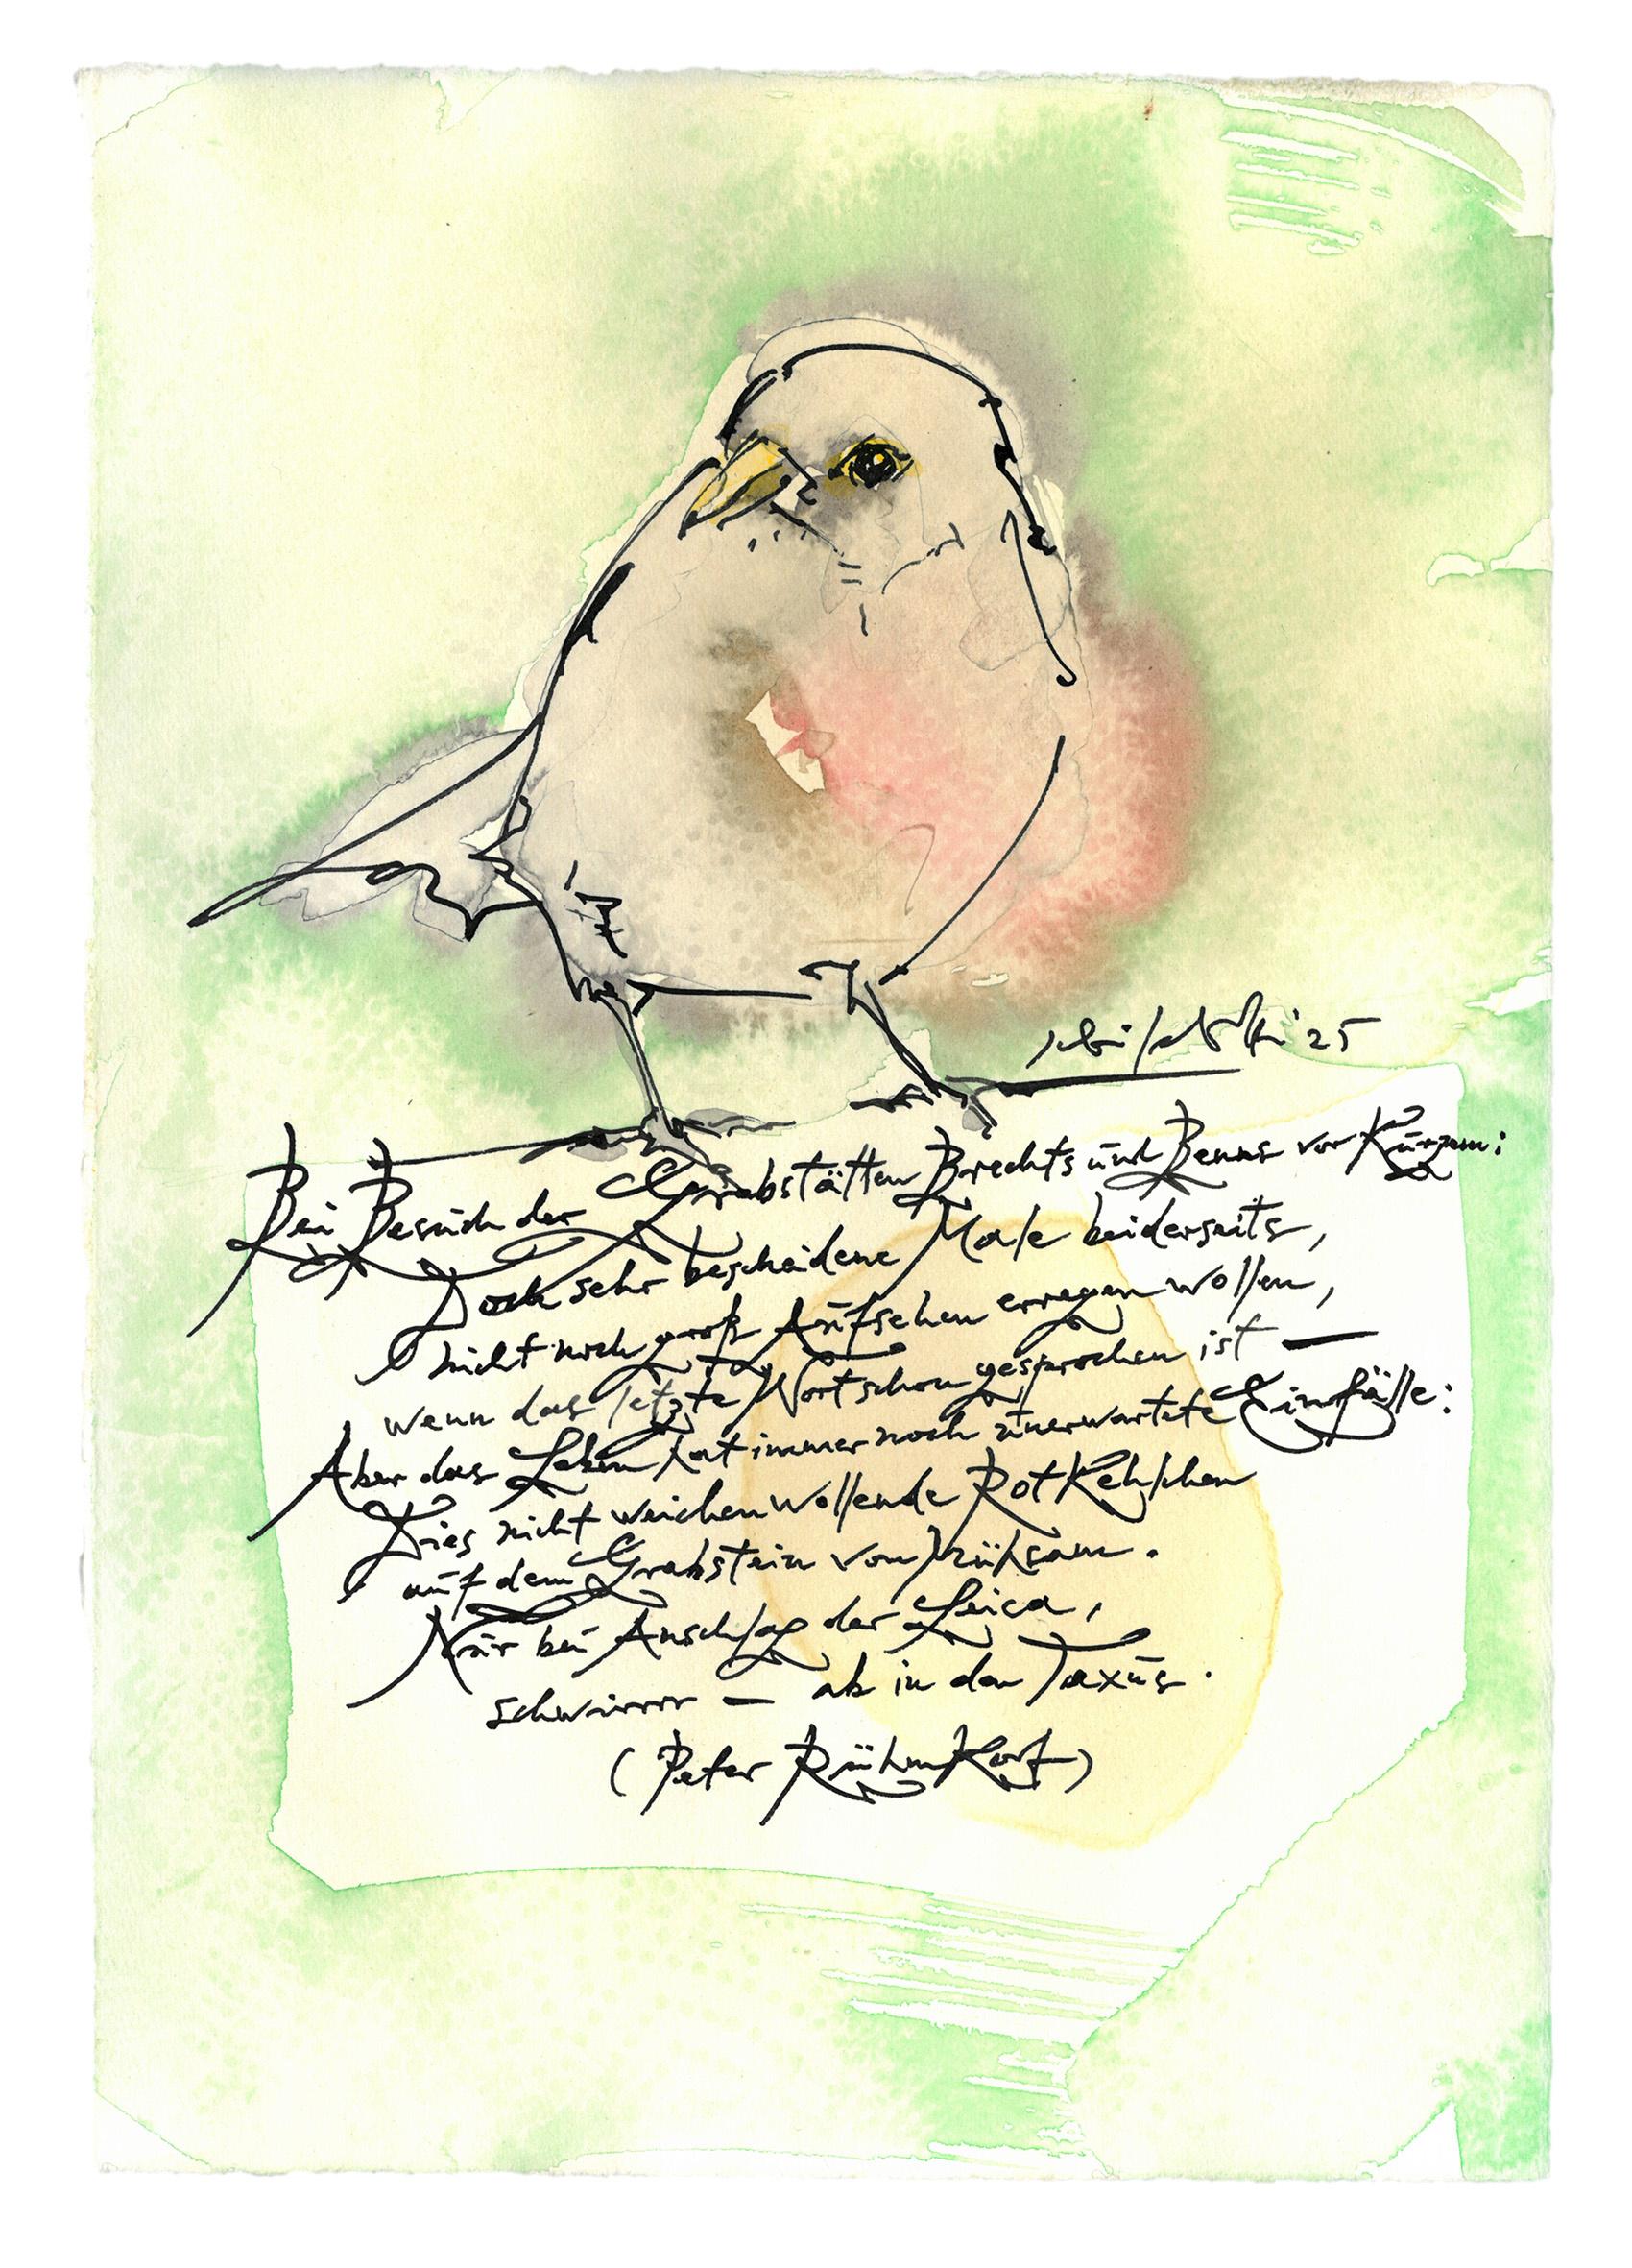 '25
Bei Besuch der Grabstätten Brechts und Benns vor Kurzem:
Doch sehr bescheidene Male beiderseits,
nicht noch groß Aufsehen erregen wollen,
wenn das letzte Wort schon gesprochen ist —
Aber das Leben hat immer noch unerwartete Einfälle:
Dies nicht weichen wollende Rotkehlchen
auf dem Grabstein von Mühsam.
Nur bei Anschlag der Leica,
schwirrrr — ab in den Taxus.
(Peter Rühmkorf)